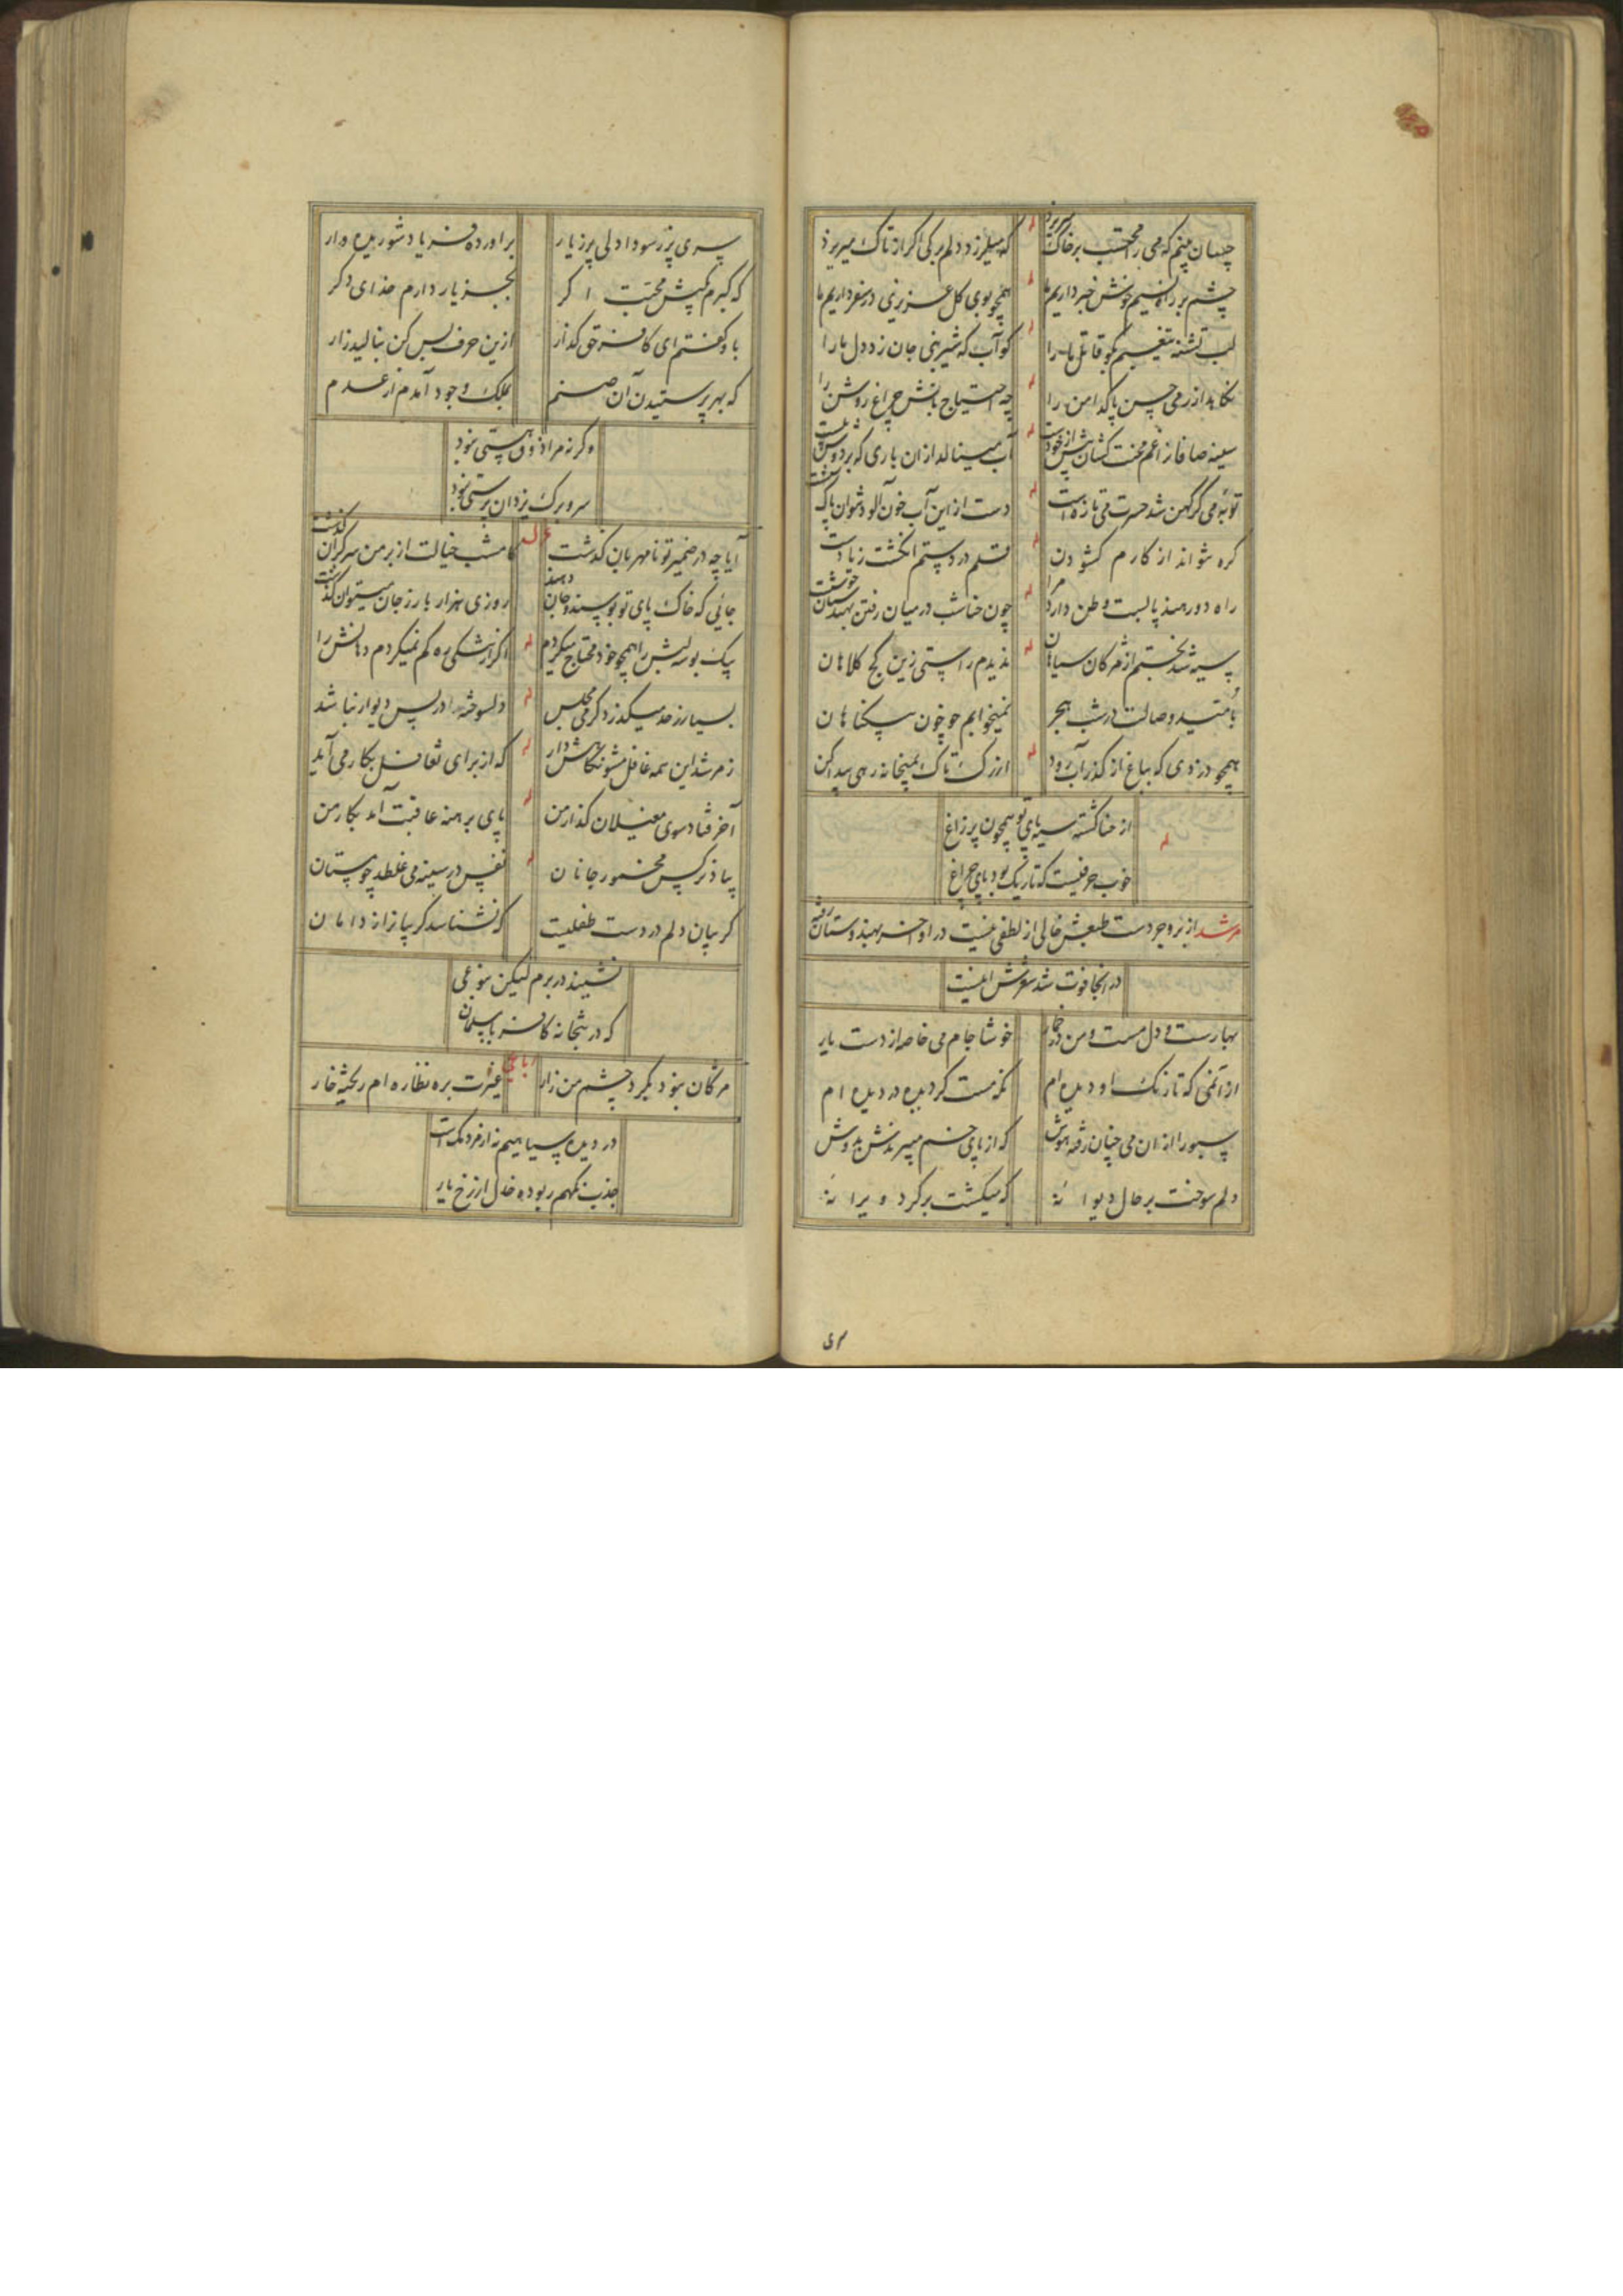 چسان بینم که می را محتسب بر خاک میریزد له که میلرزد دلم برکی اکر از تاک میریزد
چشم بر راه نسیم خوش خبر داریم ما له همچو بوی کل عزیزی در سفر داریم ما
لب تشنه تیغیم بکو قاتل ما را له کو آب که شیرینی جان زد دل ما را
نکاهدارد می حسن پاکدامن را له چه احتیاج بآتش چراغ روشن را
سینه صافان را غم محنت کشان بیش از خودست له آب مینالد از ان باری که بر دوش پلست
توبه می کر کهن شد حسرت می تازه است له دست ازین آب خون آلود نتوان پاک شست
کره نتواند از کارم کشودن له قلم در دستم انکشت زیادست
راه دور هند پابست وطن دارد مرا له چون حنا شب در میان رفتن بهندستان خوشست
سیه شد بختم از مژکان سیاهان له ندیدم راستی زین کج کلاهان
بامید وصالت در شب هجر نمیخوابم چو خون بیکناهان
همچو دزدی که بباغ از کذر آب رود له از رک تاک بمیخانه رهی پیدا کن
له از حنا کشته سیه پای تو همچون پر زاغ
خوب حرفیست که تاریک بود پای چراغ
مرشد از بروجردست طبعش خالی از لطفی نیست در اواخر بهندوستان رفته
در انجا فوت شد شعرش اینست
بهارست و دل مست و من در خمار خوشا جام می خاصه از دست یار
از آن می که تا رنک او دیده ام نکه مست کردیده در دیده ام
سبو را از ان می چنان رفته هوش که از پای خم میبرندش بدوش
دلم سوخت بر حال دیوانهٔ که میکشت بر کرد ویرانهٔ
سری پر ز سودا دلی پر ز یار براورده فریاد شوریده وار
که کبرم بکیش محبت اکر بجز یار دارم خدای دکر
باو کفتم ای کافر حق کذار ازین حرف بس کن بنالید زار
که بهر پرستیدن آن صنم بملک وجود آمدم از عدم
وکرنه مرا ذوق هستی نبود
سر و برک یزدان پرستی نبود
آیا چه در ضمیر تو نا مهربان کذشت وله کامشب خیالت از بر من سرکران کذشت
جائی که خاک پای تو بوسیند و جان دهند روزی هزار بار ز جان میتوان کذشت
بیک بوسه لبش را همچو خود محتاج میکردم له اکر از تنکی ره کم نمیکردم دهانش را
بسیار ز حد میکذرد کرمی مجلس له دلسوخته در پس دیوار نباشد
ز مرشد این همه غافل مشو نکاهش دار له که از برای تغافل بکار می آید
آخر فتاد سوی مغیلان کذار من له پای برهنه عاقبت آمد بکار من
بیاد نرکس مخمور جانان له نفس در سینه می غلطد چو مستان
کریبان دلم در دست طفلیست که نشناسد کریبان را ز دامان
نشیند در برم لیکن بنوعی
که در بتخانه کافر با مسلمان
مژکان نبود بکرد چشم من زار رباعی غیرت بره نظاره ام ریخته خار
در دیده سیاهیم نه از مردمک است
جذب نکهم ربوده خال از رخ یار